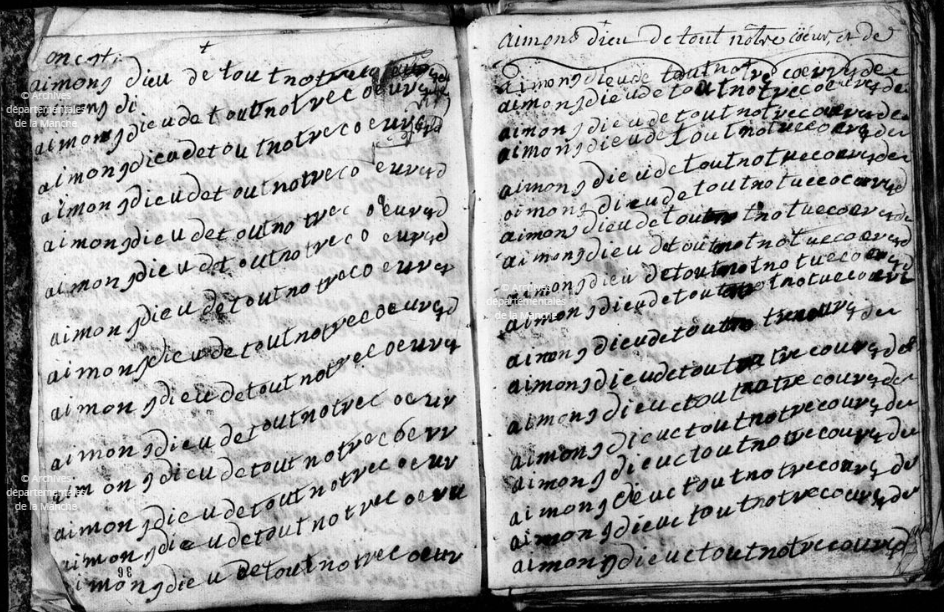 onc st.
aimons dieu de tout notre
aimons di
aimonsdieudetoutnotrecoeurs
aimonsdieudetoutnotreco eurs
aimonsdieudetoutnotreco eursd
aimonsdieudetoutnotrec oeursd
aimonsdieudetoutnotreco eursd
aimonsdieudetoutnotreco eurs
aimonsdieudetoutnotrecoeursd
aimonsdieudetoutnotrecoeurs
aimonsdieudetoutnotrec oeur
aimonsdieudetoutnotrecoeur
aimonsdieudetoutnotrecoeur
aimonsdieudetoutnotrecoeur
aimonsdieudetoutnotrecoeur
36
aimons dieu de tout nôtre cöeur, et de
aimonsdieude toutnotre coeursde
aimonsdieudetoutnotrecoeursde
aimonsdieudetoutnotrecoeursde
aimonsdieudetoutnotuecoersde
aimonsdieudetoutnotuecoersde
aimonsdieudetoutnotuecoersd
aimonsdieudetout notuecoersde
aimonsdieudetout notuecoersd
aimonsdieudetout notuecoersd
aimonsdieudetout notuecoeur
aimonsdieudetout de
aimonsdieudetout trecoursde
aimonsdieuctoutnotre coursde
aimonsdieuctoutnotrecoursde
aimonsdieuctoutnotrecoursde
aimonsdieuctoutnotrecoursde
aimonsdieuctoutnotrecoursde
aimonsdieuctoutnotrecoursd
© Archives
départementales
de la Manche
© Archives
départementales
de la Manche
© Archives
départementales
de la Manche